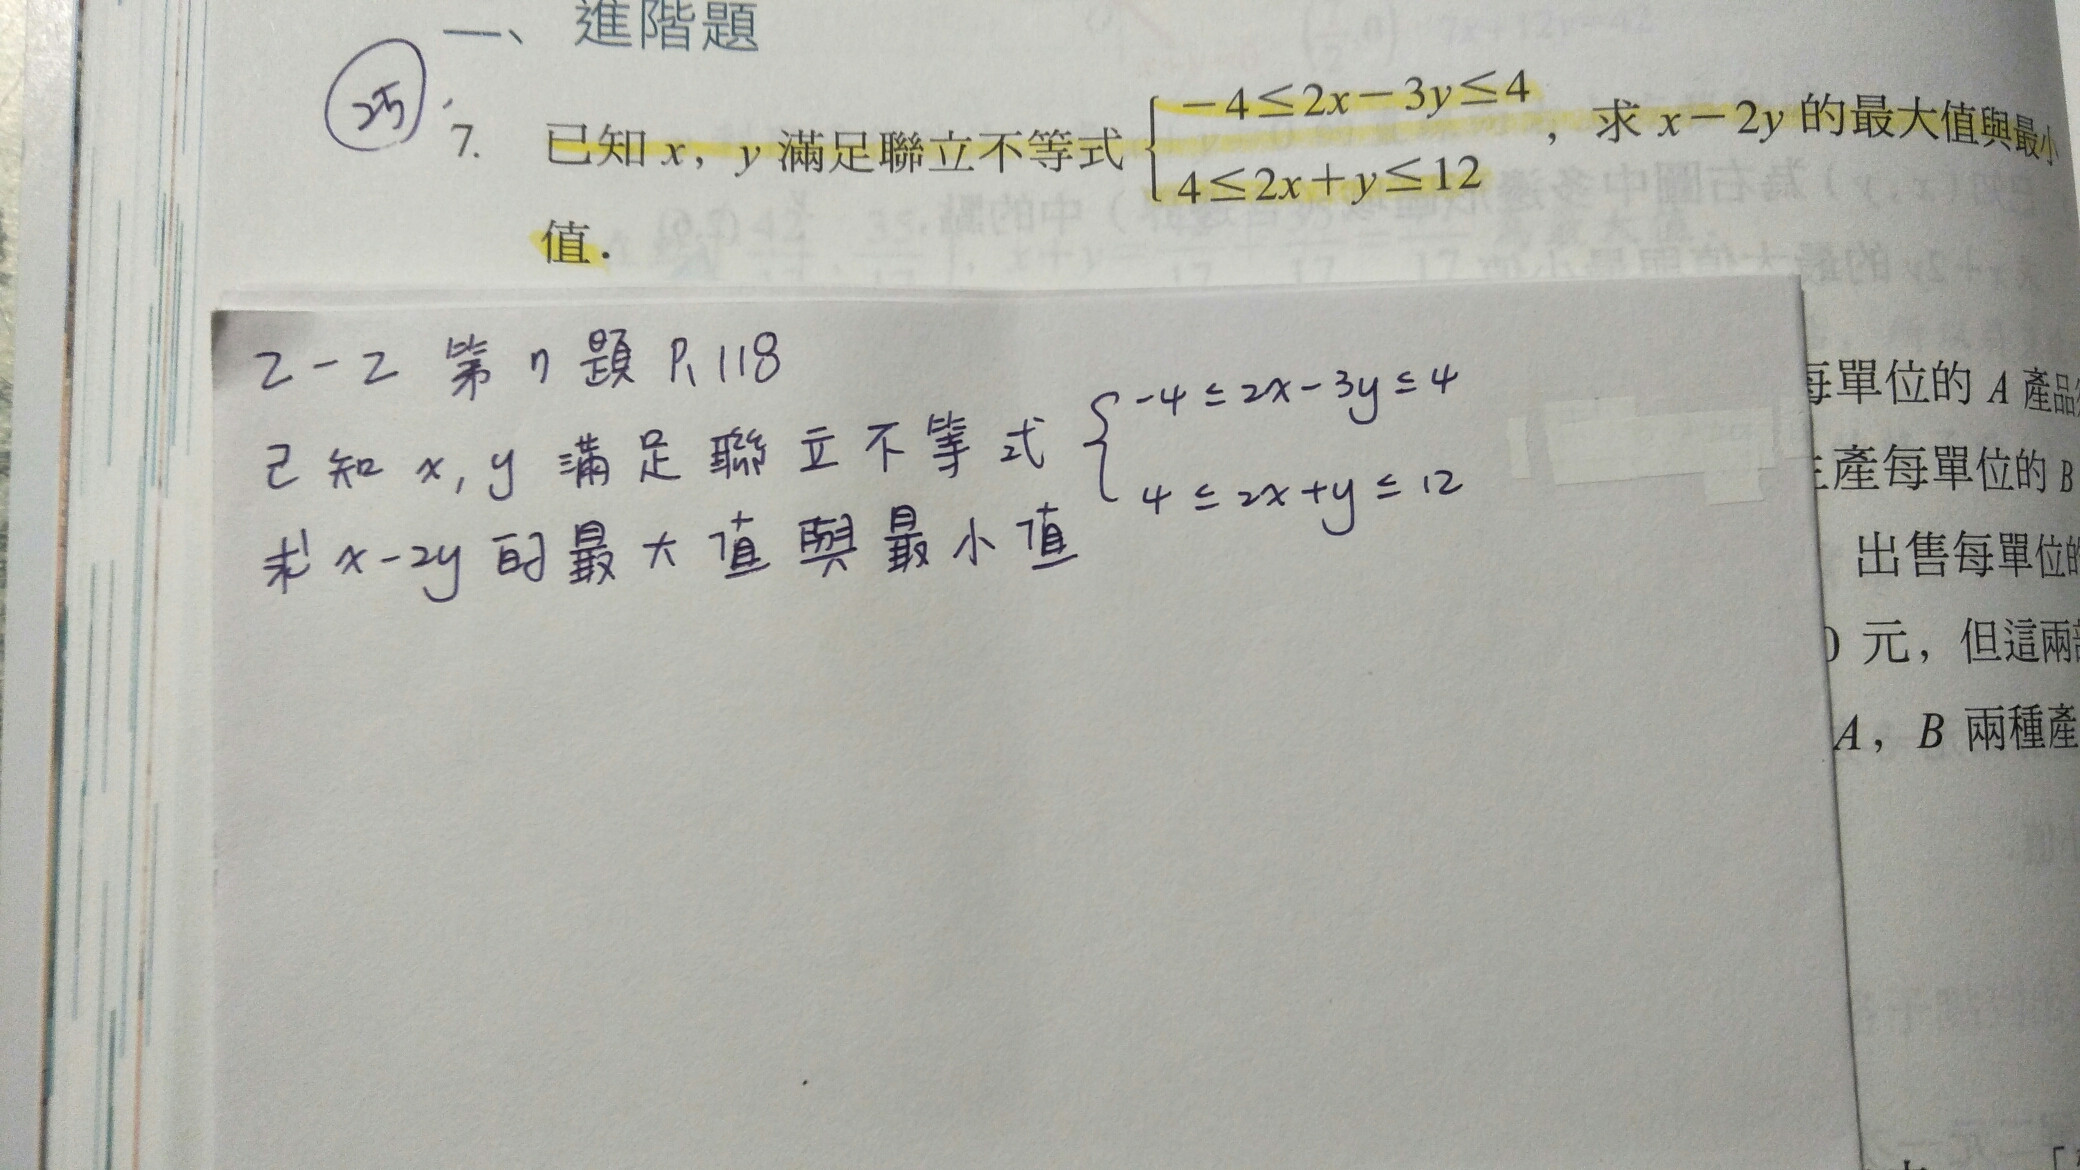 一、進階題
25
7. 已知 x, y 滿足聯立不等式 { -4≤2x-3y≤4 , 求 x-2y 的最大值與最小
4≤2x+y≤12
值.
2-2 第7題 P.118
已知 x, y 滿足聯立不等式 { -4≤2x-3y≤4
4≤2x+y≤12
求 x-2y 的最大值與最小值
每單位的 A 產品
生產每單位的 B
出售每單位的
0 元,但這兩
A, B 兩種產